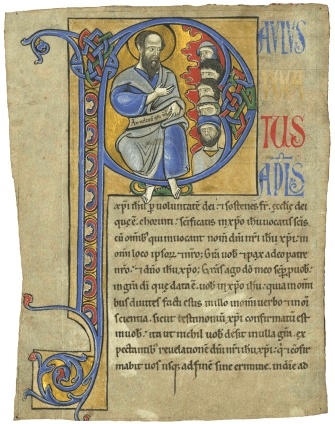 PAVLVS
VOCA
TUS
APLS
xpi ihu p voluntatem dei · & sostenes fr. ecclie dei
que ē chorinti : scificatis in xpo ihu uocatis scis
cū omib; qui inuocant nom dn̄i nr̄i ihu xpi · in
omni loco ipsor̄ nr̄o; Gr̄a uob & pax a deo patre
nr̄o · & dn̄o ihu xpo; Gr̄as ago dō meo sēp; p uob
in grā di que data ē uob in xpo ihu · quia in om
nibus diuites facti estis in illo in omni uerbo & in oī
scientia · sicut testimoniū xpi confirmatū est
in uob · ita ut nichil uob desit in ulla grā · ex
pectantib; reuelationē dn̄i nr̄i ihu xpi · q̄ & cōfir
mabit uos usq; ad finē sine crimine · in die ad